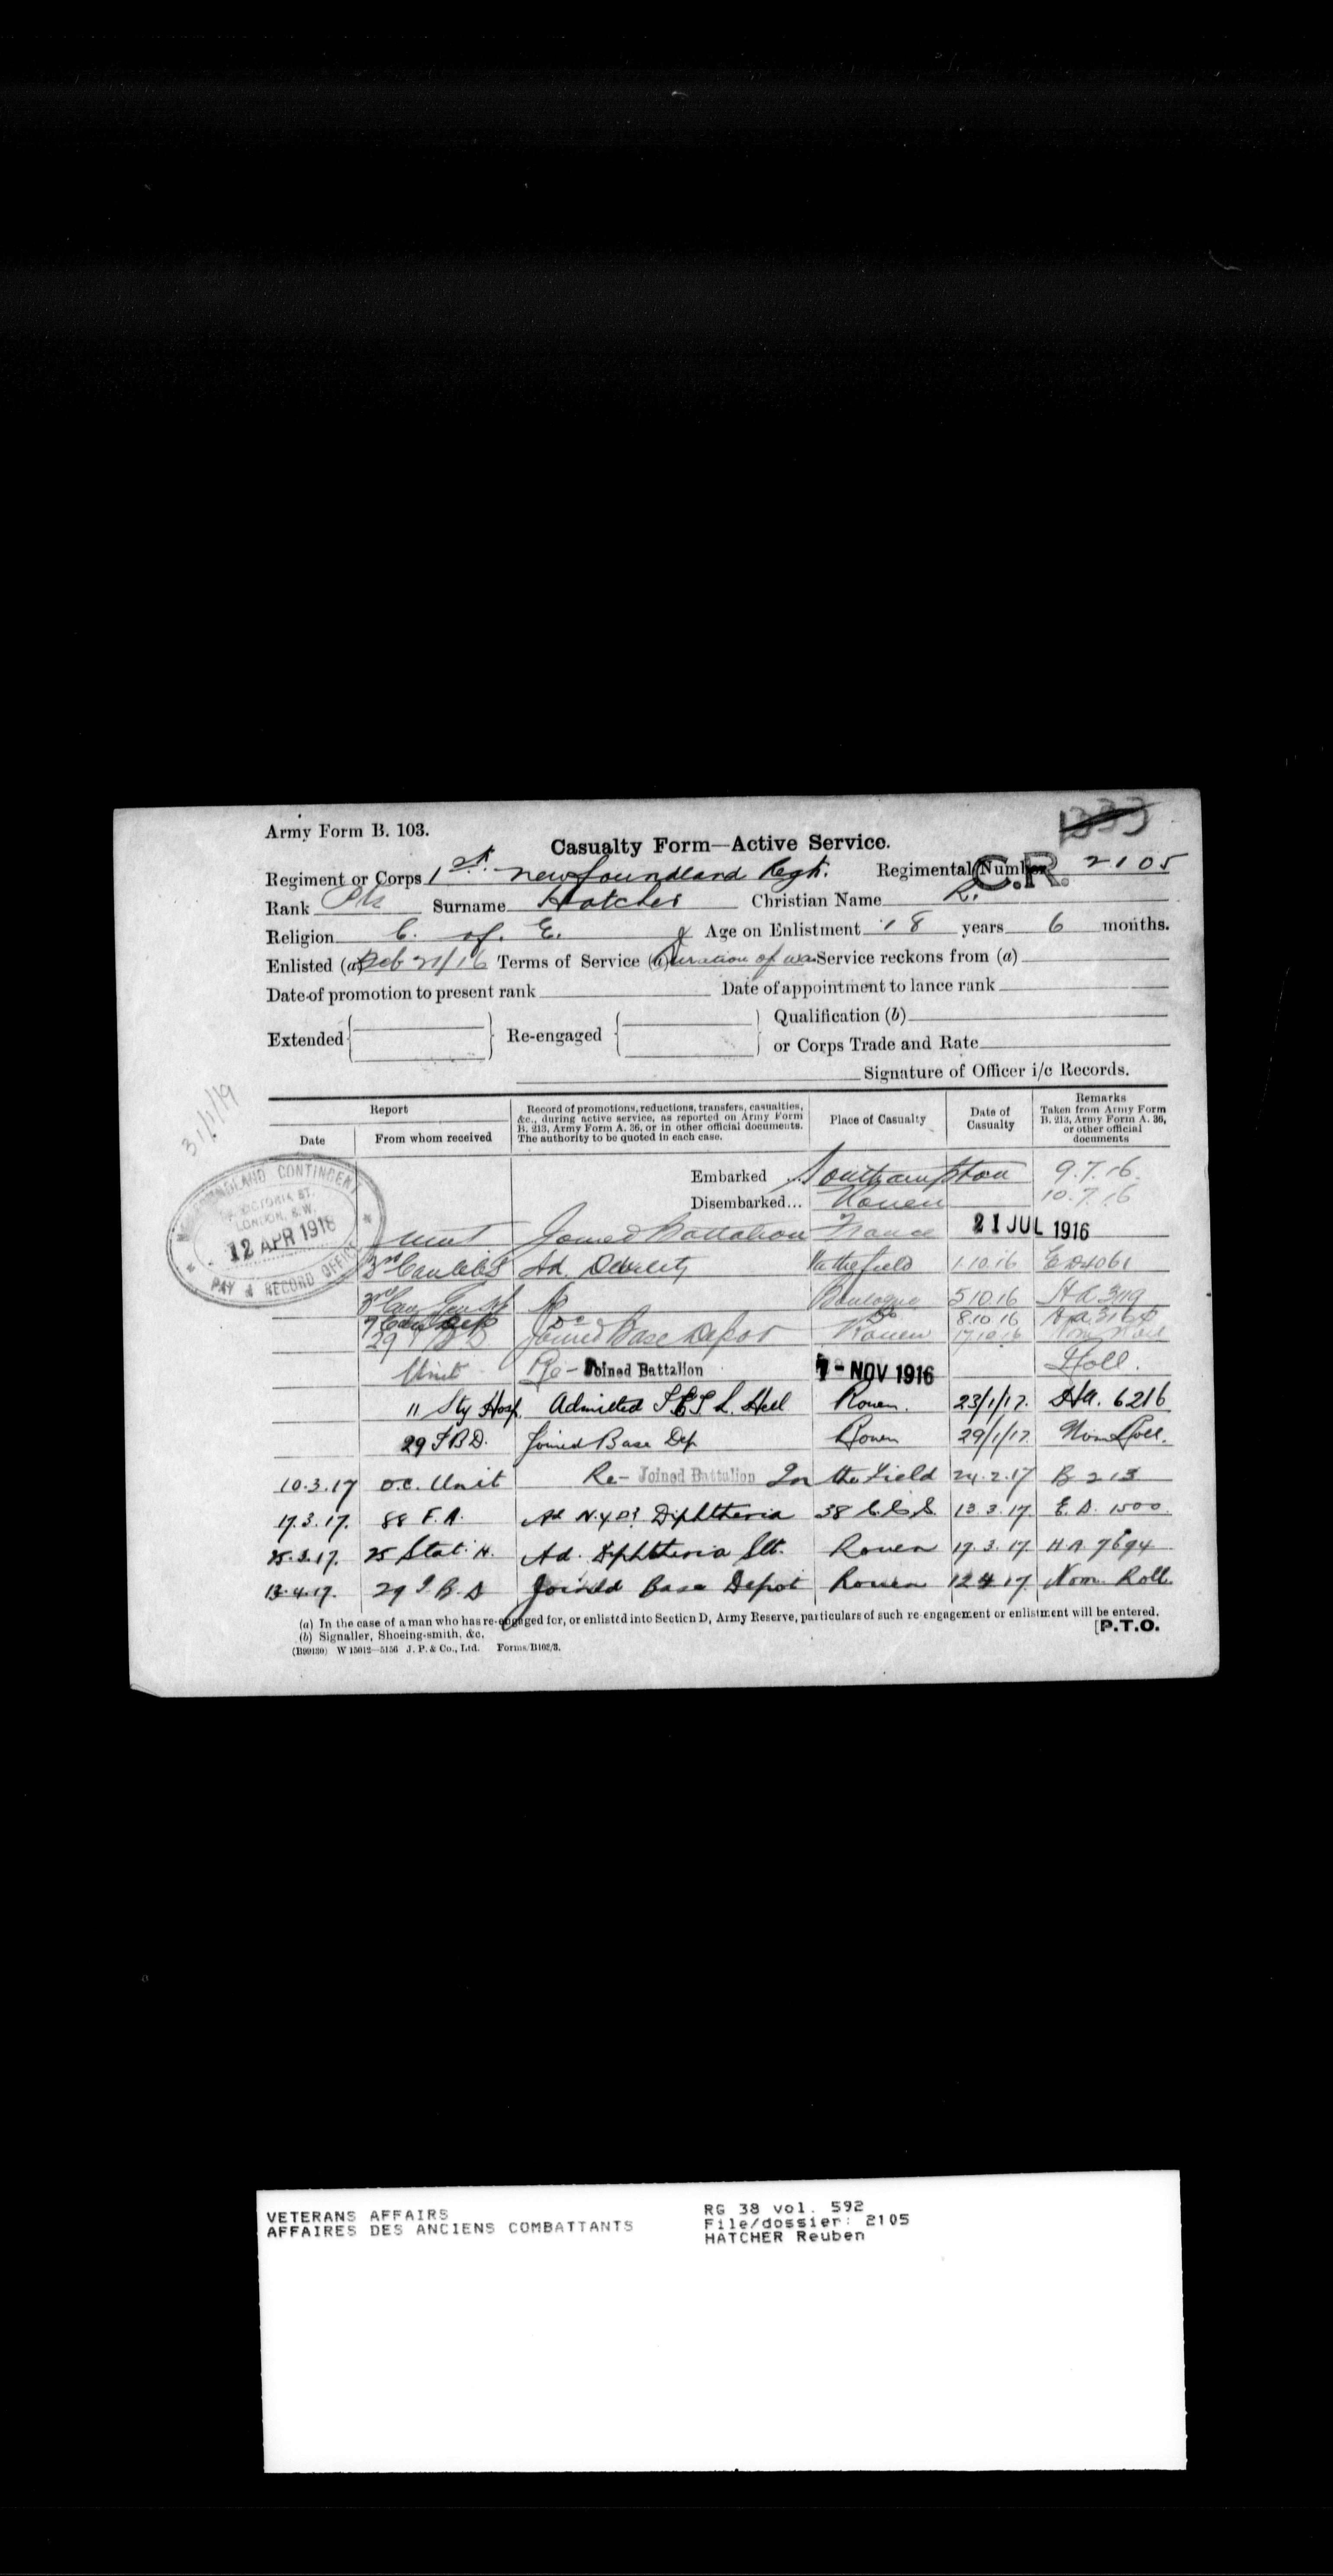 1333
Army Form B. 103.
Casualty Form—Active Service.
Regiment or Corps 1st. Newfoundland Regt. Regimental Number 2105
C.R.
Rank Pte Surname Hatcher Christian Name R.
Religion C. of. E. Age on Enlistment 18 years 6 months.
Enlisted (a) Feb 21/16 Terms of Service (a) Duration of war Service reckons from (a)
Date of promotion to present rank Date of appointment to lance rank
Extended Re-engaged Qualification (b)
or Corps Trade and Rate
Signature of Officer i/c Records.
31/1/19
Report Record of promotions, reductions, transfers, casualties, &c., during active service, as reported on Army Form B. 213, Army Form A. 36, or in other official documents. The authority to be quoted in each case. Place of Casualty Date of Casualty Remarks Taken from Army Form B. 213, Army Form A. 36, or other official documents
Date From whom received
NEWFOUNDLAND CONTINGENT
VICTORIA ST.
LONDON, S.W.
12 APR 1918
PAY & RECORD OFFICE
Embarked Southampton 9.7.16.
Disembarked... Rouen 10.7.16
Unit Joined Battalion France 21 JUL 1916
3rd Can Ad. In the field 1.10.16
3rd Can Boulogne 5.10.16 H.A.
Do 8.10.16
29 Joined Base Depot Rouen 17.10.16 Nom Roll
Unit Re- Joined Battalion 7 - NOV 1916 Roll.
11 Sty Hosp. Admitted Rouen. 23/1/17. HA. 6216
29 I.B.D. Joined Base Dep Rouen 29/1/17. Nom Roll.
10.3.17 O.C. Unit Re- Joined Battalion In the Field 24.2.17 B 213
17.3.17. 88 F.A. Ad N.Y.D? Diphtheria 38 C.C.S. 13.3.17. E.D. 1500.
25.3.17. 25 Stat. H. Ad. Diphtheria Slt. Rouen 17.3.17. H.A 7694
13.4.17. 29 I.B.D Joined Base Depot Rouen 12.4.17 Nom. Roll.
(a) In the case of a man who has re-engaged for, or enlisted into Section D, Army Reserve, particulars of such re-engagement or enlistment will be entered.
(b) Signaller, Shoeing-smith, &c.
[P.T.O.
W 15012—5156 J. P. & Co., Ltd. Forms/B103/3.
VETERANS AFFAIRS RG 38 vol. 592
AFFAIRES DES ANCIENS COMBATTANTS File/dossier: 2105
HATCHER Reuben